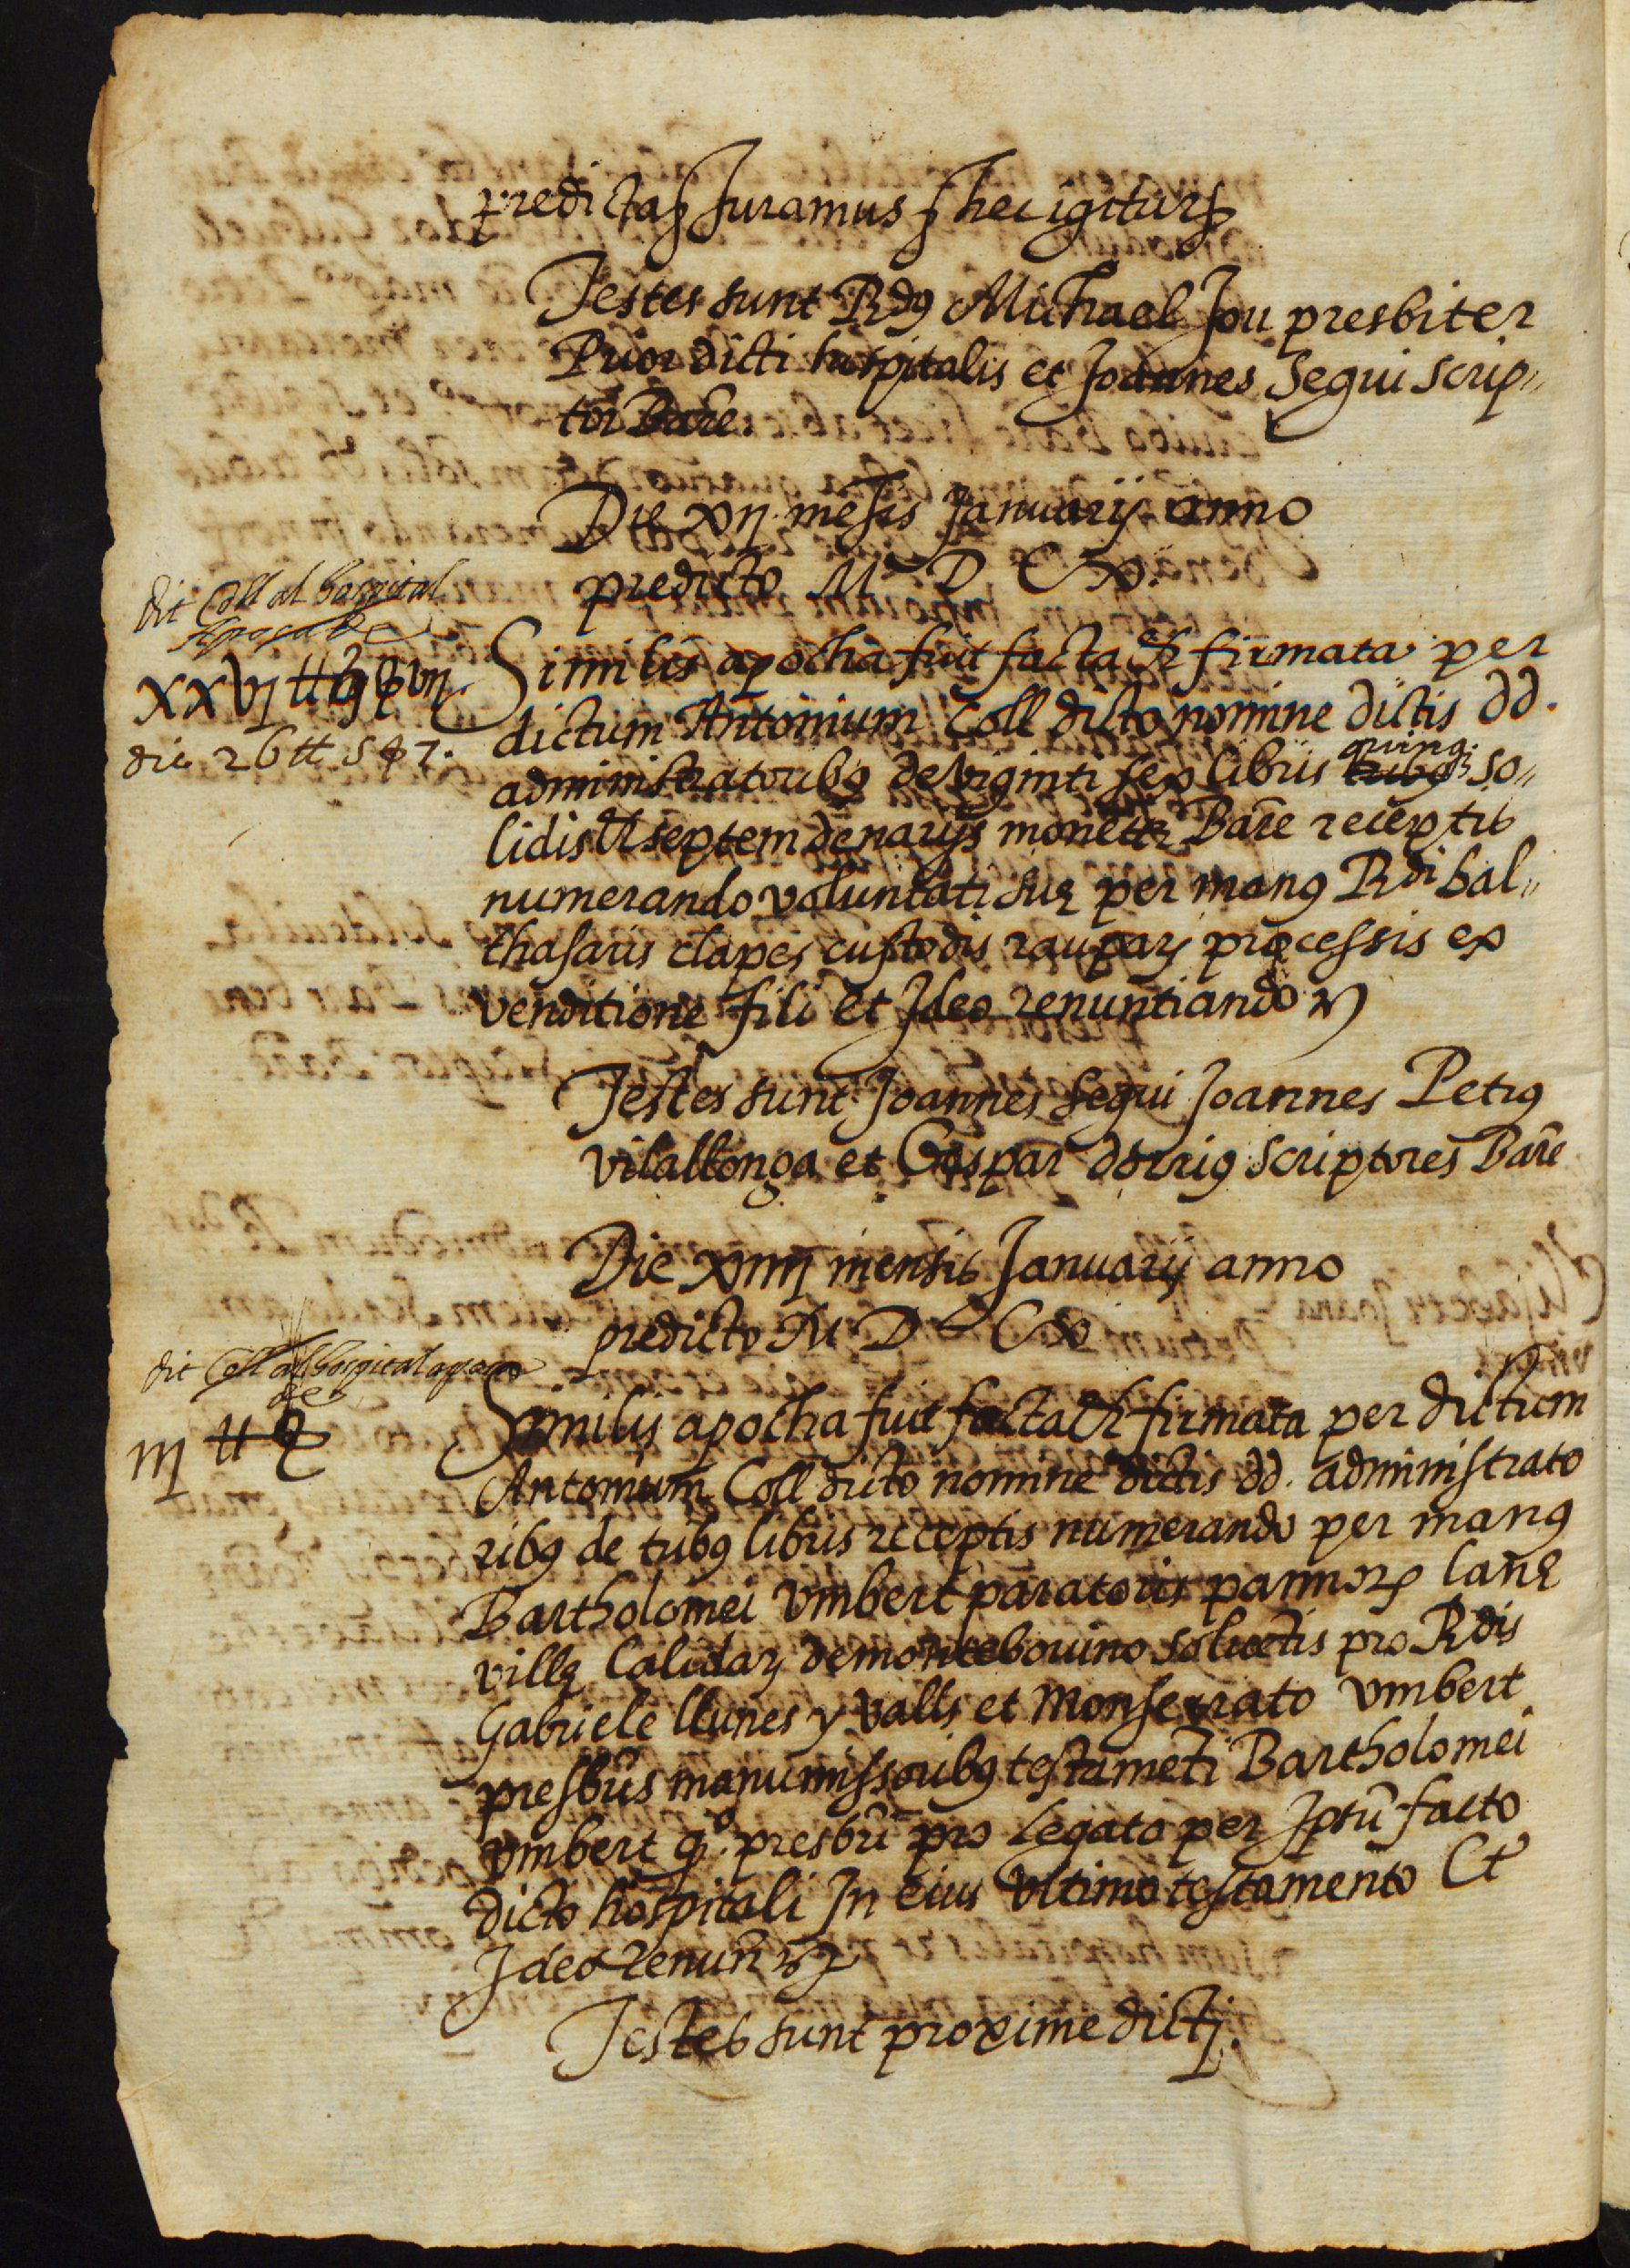 predictas Juramus hec igitur
Testes sunt Rdus Michael Jou presbiter
Prior dicti hospitalis et Joannes Segui scrip„
tor Barñe.
Die xij mesis Januarij anno
predicto M D Cx.
dit Coll al hospital
Apoca de
xxvj ⁒ vij
die 26 ⁒ s 5 7.
Similis apocha fuit facta et firmata per
dictum Antonium Coll dicto nomine dictis dd.
administratoribus de viginti sex libris tribus quinq so„
lidis et septem denarijs monete Barñe receptis
numerando voluntati sue per manus Rdi bal„
thasaris clapes custodis raupar processis ex
venditione fili et Ideo renuntiando
Testes sunt Joannes Segui Joannes Petrus
vilallonga et Gaspar dorrius scriptores Barñe
Die xiiij mensis Januarij anno
predicto M D Cx
dit Coll al hospital apoca
de
iij ⁒
Similis apocha fuit facta et firmata per dictum
Antonium Coll dicto nomine dictis dd. administrato
ribus de tribus libris receptis numerando per manus
Bartholomei vmbert paratoris pannorum lane
ville Calidar de montebouino solventis pro Rdis
Gabriele llunes y valls et Monserrato vmbert
presbris manumissoribus testameti Bartholomei
vmbert qo. presbri pro legato per Ipsu facto
dicto hospitali In eius vltimo testamento Et
Ideo renun
Testes sunt proxime dictj.